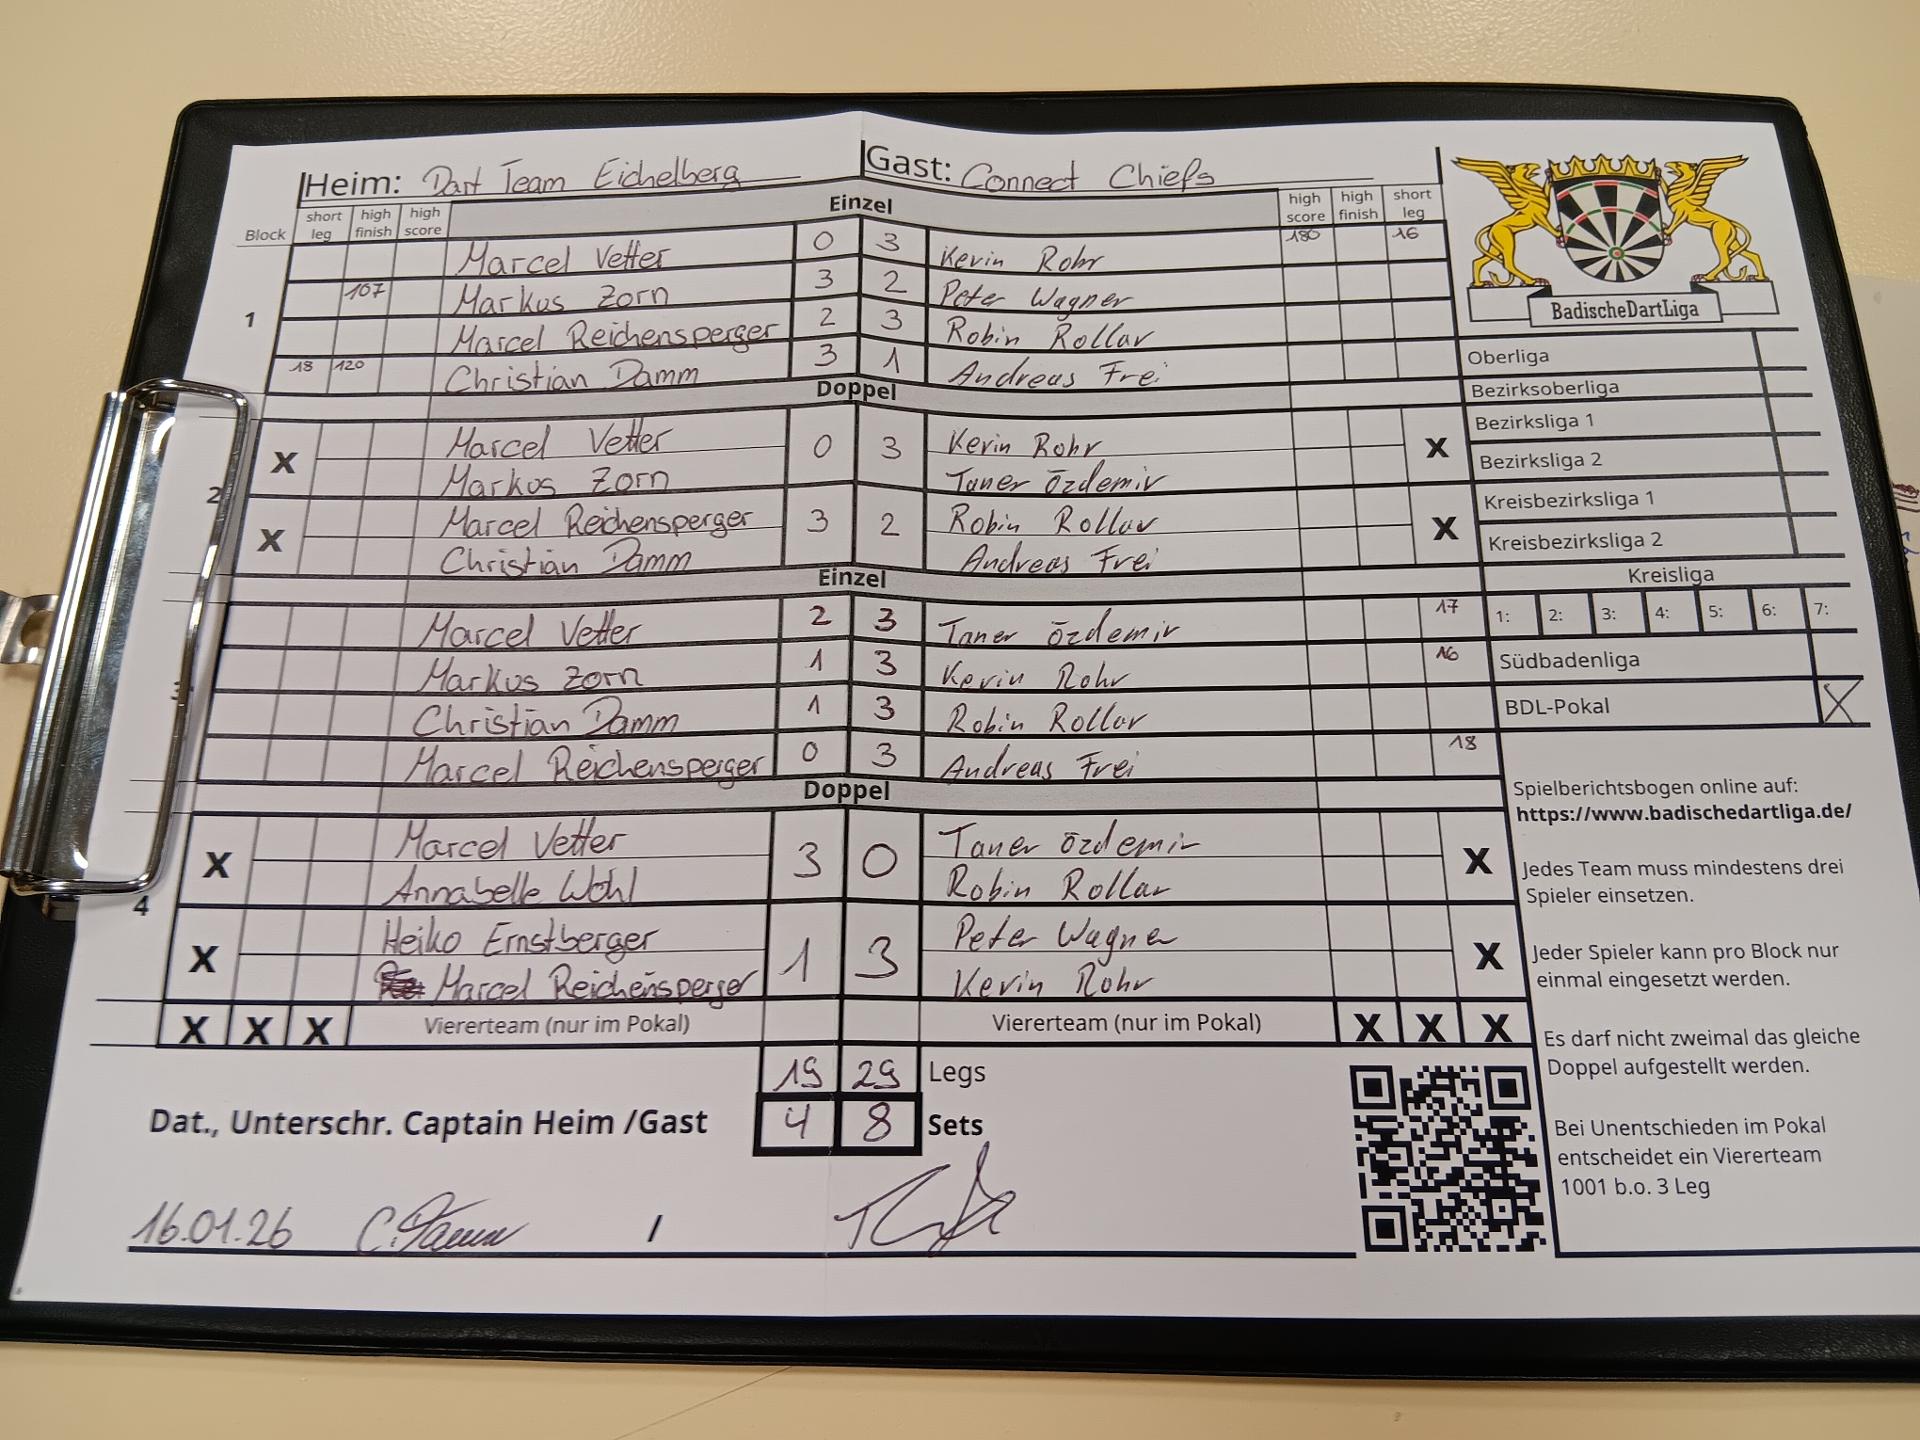 Heim: Dart Team Eichelberg Gast: Connect Chiefs
Block short leg high finish high score Einzel high score high finish short leg
Marcel Vetter 0 3 Kevin Rohr 180 16
107 Markus Zorn 3 2 Peter Wagner
1
Marcel Reichensperger 2 3 Robin Rollar
18 120 Christian Damm 3 1 Andreas Frei
Doppel
X Marcel Vetter 0 3 Kevin Rohr X
Markus Zorn Taner Özdemir
2
X Marcel Reichensperger 3 2 Robin Rollar X
Christian Damm Andreas Frei
Einzel
Marcel Vetter 2 3 Taner Özdemir 17
Markus Zorn 1 3 Kevin Rohr 16
3
Christian Damm 1 3 Robin Rollar
Marcel Reichensperger 0 3 Andreas Frei 18
Doppel
X Marcel Vetter 3 0 Taner Özdemir X
Annabelle Wohl Robin Rollar
4
X Heiko Ernstberger 1 3 Peter Wagner X
Marcel Reichensperger Kevin Rohr
X X X Viererteam (nur im Pokal) Viererteam (nur im Pokal) X X X
19 29 Legs
Dat., Unterschr. Captain Heim /Gast 4 8 Sets
16.01.26 C. Damm /
BadischeDartLiga
Oberliga
Bezirksoberliga
Bezirksliga 1
Bezirksliga 2
Kreisbezirksliga 1
Kreisbezirksliga 2
Kreisliga
1: 2: 3: 4: 5: 6: 7:
Südbadenliga
BDL-Pokal X
Spielberichtsbogen online auf:
https://www.badischedartliga.de/
Jedes Team muss mindestens drei
Spieler einsetzen.
Jeder Spieler kann pro Block nur
einmal eingesetzt werden.
Es darf nicht zweimal das gleiche
Doppel aufgestellt werden.
Bei Unentschieden im Pokal
entscheidet ein Viererteam
1001 b.o. 3 Leg